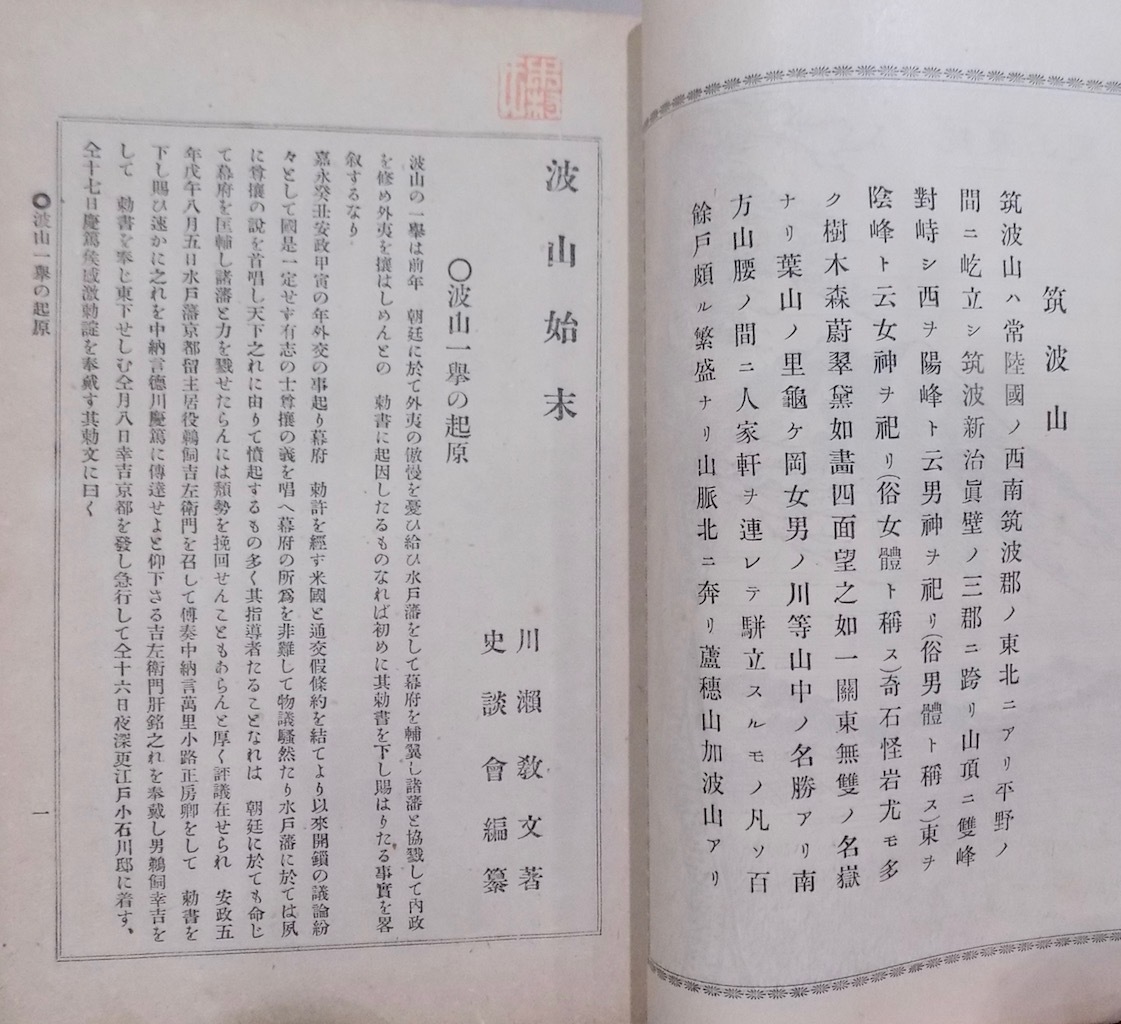 筑波山
筑波山ハ常陸國ノ西南筑波郡ノ東北ニアリ平野ノ
間ニ屹立シ筑波新治眞壁ノ三郡ニ跨リ山頂ニ雙峰
對峙シ西ヲ陽峰ト云男神ヲ祀リ(俗男體ト稱ス)東ヲ
陰峰ト云女神ヲ祀リ(俗女體ト稱ス)奇石怪岩尤モ多
ク樹木森蔚翠黛如畵四面望之如一關東無雙ノ名嶽
ナリ葉山ノ里龜ケ岡女男ノ川等山中ノ名勝アリ南
方山腰ノ間ニ人家軒ヲ連レテ駢立スルモノ凡ソ百
餘戸頗ル繁盛ナリ山脈北ニ奔リ蘆穗山加波山アリ
波山始末
川瀨敎文著
史談會編纂
〇波山一擧の起原
波山の一擧は前年 朝廷に於て外夷の傲慢を憂ひ給ひ水戸藩をして幕府を輔翼し諸藩と協戮して内政
を修め外夷を攘はしめんとの 勅書に起因したるものなれば初めに其勅書を下し賜はりたる事實を畧
叙するなり
嘉永癸丑安政甲寅の年外交の事起り幕府 勅許を經す米國と通交假條約を結てより以來開鎖の議論紛
々として國是一定せず有志の士尊攘の義を唱へ幕府の所爲を非難して物議騷然たり水戸藩に於ては夙
に尊攘の說を首唱し天下之れに由りて憤起するもの多く其指導者たることなれは 朝廷に於ても命じ
て幕府を匡輔し諸藩と力を戮せたらんには頽勢を挽回せんこともあらんと厚く評議在せられ 安政五
年戊午八月五日水戸藩京都留主居役鵜飼吉左衛門を召して傳奏中納言萬里小路正房卿をして 勅書を
下し賜ひ速かに之れを中納言德川慶篤に傳達せよと仰下さる吉左衛門肝銘之れを奉戴し男鵜飼幸吉を
して 勅書を奉じ東下せしむ仝月八日幸吉京都を發し急行して仝十六日夜深更江戸小石川邸に着す、
仝十七日慶篤矦感激勅諚を奉戴す其勅文に曰く
〇波山一擧の起原
一